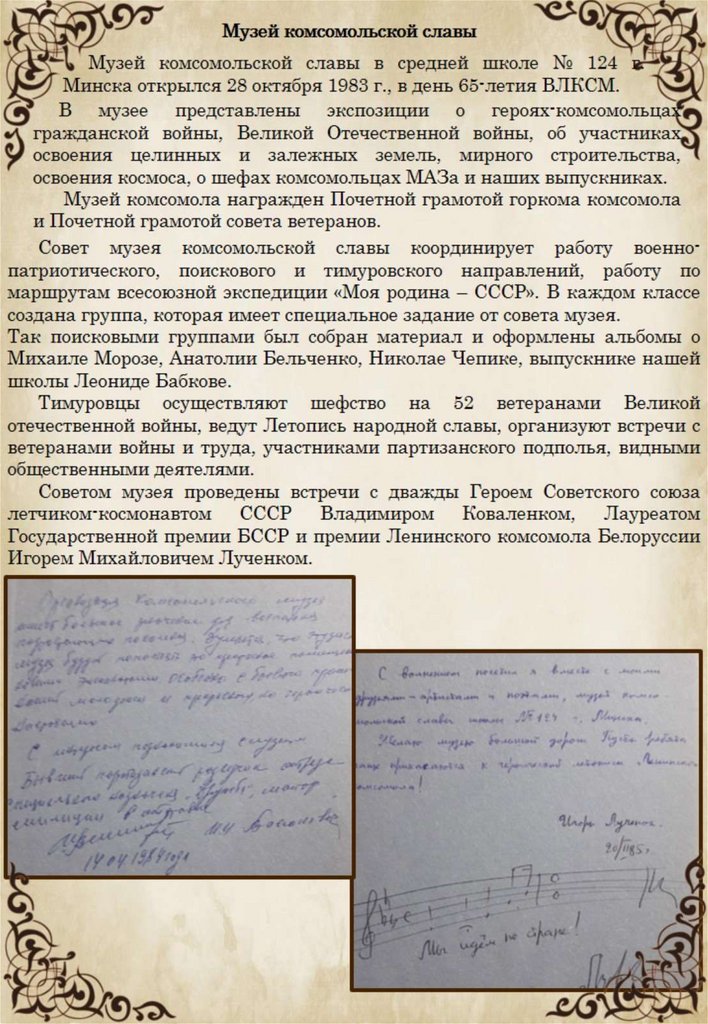 Музей комсомольской славы
Музей комсомольской славы в средней школе № 124 г.
Минска открылся 28 октября 1983 г., в день 65-летия ВЛКСМ.
В музее представлены экспозиции о героях-комсомольцах
гражданской войны, Великой Отечественной войны, об участниках
освоения целинных и залежных земель, мирного строительства,
освоения космоса, о шефах комсомольцах МАЗа и наших выпускниках.
Музей комсомола награжден Почетной грамотой горкома комсомола
и Почетной грамотой совета ветеранов.
Совет музея комсомольской славы координирует работу военно-
патриотического, поискового и тимуровского направлений, работу по
маршрутам всесоюзной экспедиции «Моя родина – СССР». В каждом классе
создана группа, которая имеет специальное задание от совета музея.
Так поисковыми группами был собран материал и оформлены альбомы о
Михаиле Морозе, Анатолии Бельченко, Николае Чепике, выпускнике нашей
школы Леониде Бабкове.
Тимуровцы осуществляют шефство на 52 ветеранами Великой
отечественной войны, ведут Летопись народной славы, организуют встречи с
ветеранами войны и труда, участниками партизанского подполья, видными
общественными деятелями.
Советом музея проведены встречи с дважды Героем Советского союза
летчиком-космонавтом СССР Владимиром Коваленком, Лауреатом
Государственной премии БССР и премии Ленинского комсомола Белоруссии
Игорем Михайловичем Лученком.
комсомольского музея
имеет большое значение для воспитания
подрастающего поколения.
музея будут
молодёжи
С
Бывший партизанский разведчик отряда
майор
милиции в отставке
14.04.1984 года
С волнением посетил я вместе с моими
друзьями - артистами и поэтами, музей комсо-
мольской славы школы № 124 г. Минска.
Желаю музею большой дороги. Пусть ребята
прикасаются к героической летописи Ленинского
комсомола!
Игорь Лученок.
20/III 85г.
Мы идём по стране!